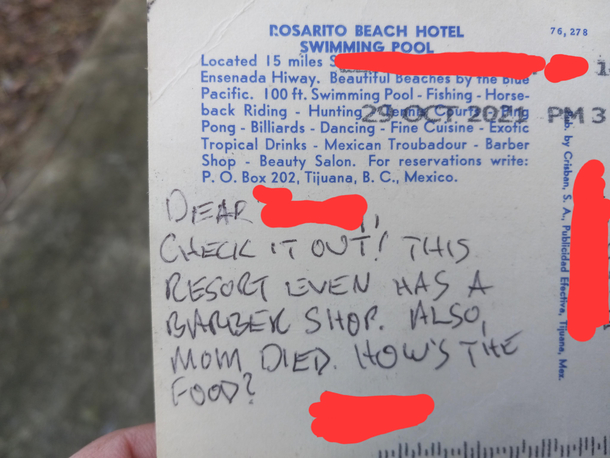 ROSARITO BEACH HOTEL
76,278
SWIMMING POOL
Located 15 miles
Ensenada Hiway. Beautiful Beaches by the Blue
Pacific. 100 ft. Swimming Pool - Fishing - Horse-
back Riding - Hunting - Tennis Courts - Ping
29 OCT 2021 PM 3
Pong - Billiards - Dancing - Fine Cuisine - Exotic
Tropical Drinks - Mexican Troubadour - Barber
Shop - Beauty Salon. For reservations write:
P. O. Box 202, Tijuana, B. C., Mexico.
Pub. by Crisban, S. A., Publicidad Efectiva, Tijuana, Mex.
DEAR
CHECK IT OUT! THIS
RESORT EVEN HAS A
BARBER SHOP. ALSO,
MOM DIED. HOW'S THE
FOOD?